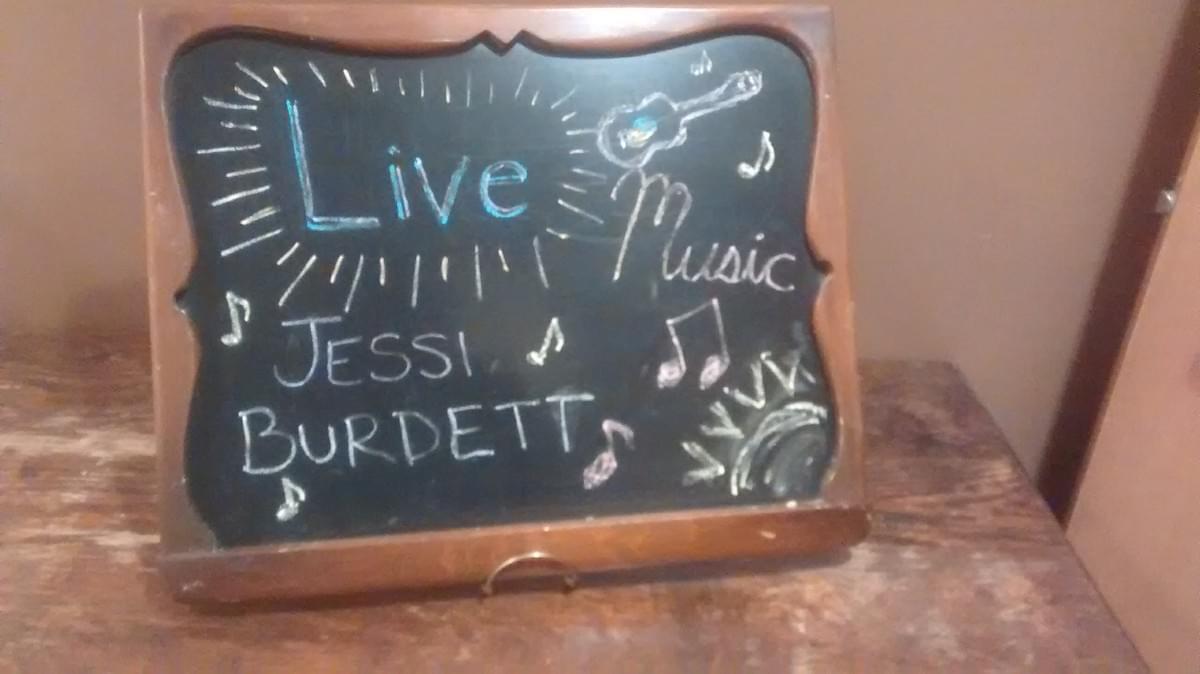 Live
Music
JESSI
BURDETT